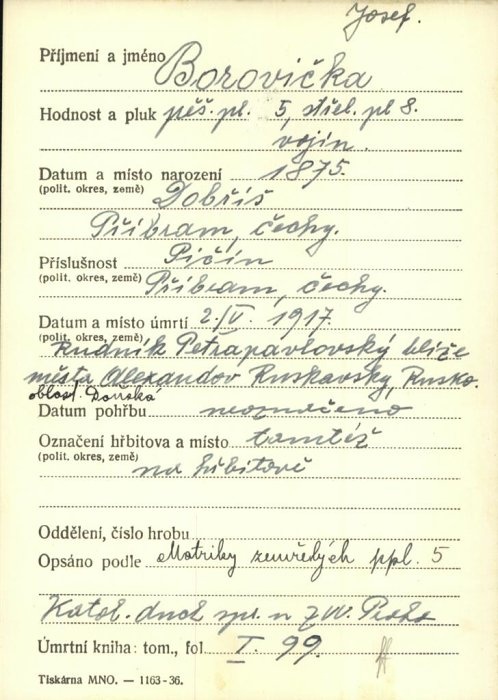 Josef.
Příjmení a jméno Borovička
Hodnost a pluk pěš. pl. 5, střel. pl 8.
vojín.
Datum a místo narození 1875.
(polit. okres, země) Dobříš
Příbram, čechy.
Příslušnost Pičín
(polit. okres, země) Příbram, čechy.
Datum a místo úmrtí 2./V. 1917.
(polit. okres, země)
Rudník Petrapavlovský blíže
města Alexandov Ruskavsky, Rusko.
oblast. Donská
Datum pohřbu neoznačeno
Označení hřbitova a místo tamtéž
(polit. okres, země) na hřbitově
Oddělení, číslo hrobu
Opsáno podle Matriky zemřelých ppl. 5
Katol. duch. spr. n ZVV. Praha
Úmrtní kniha: tom., fol. I. 99.
Tiskárna MNO. — 1163-36.